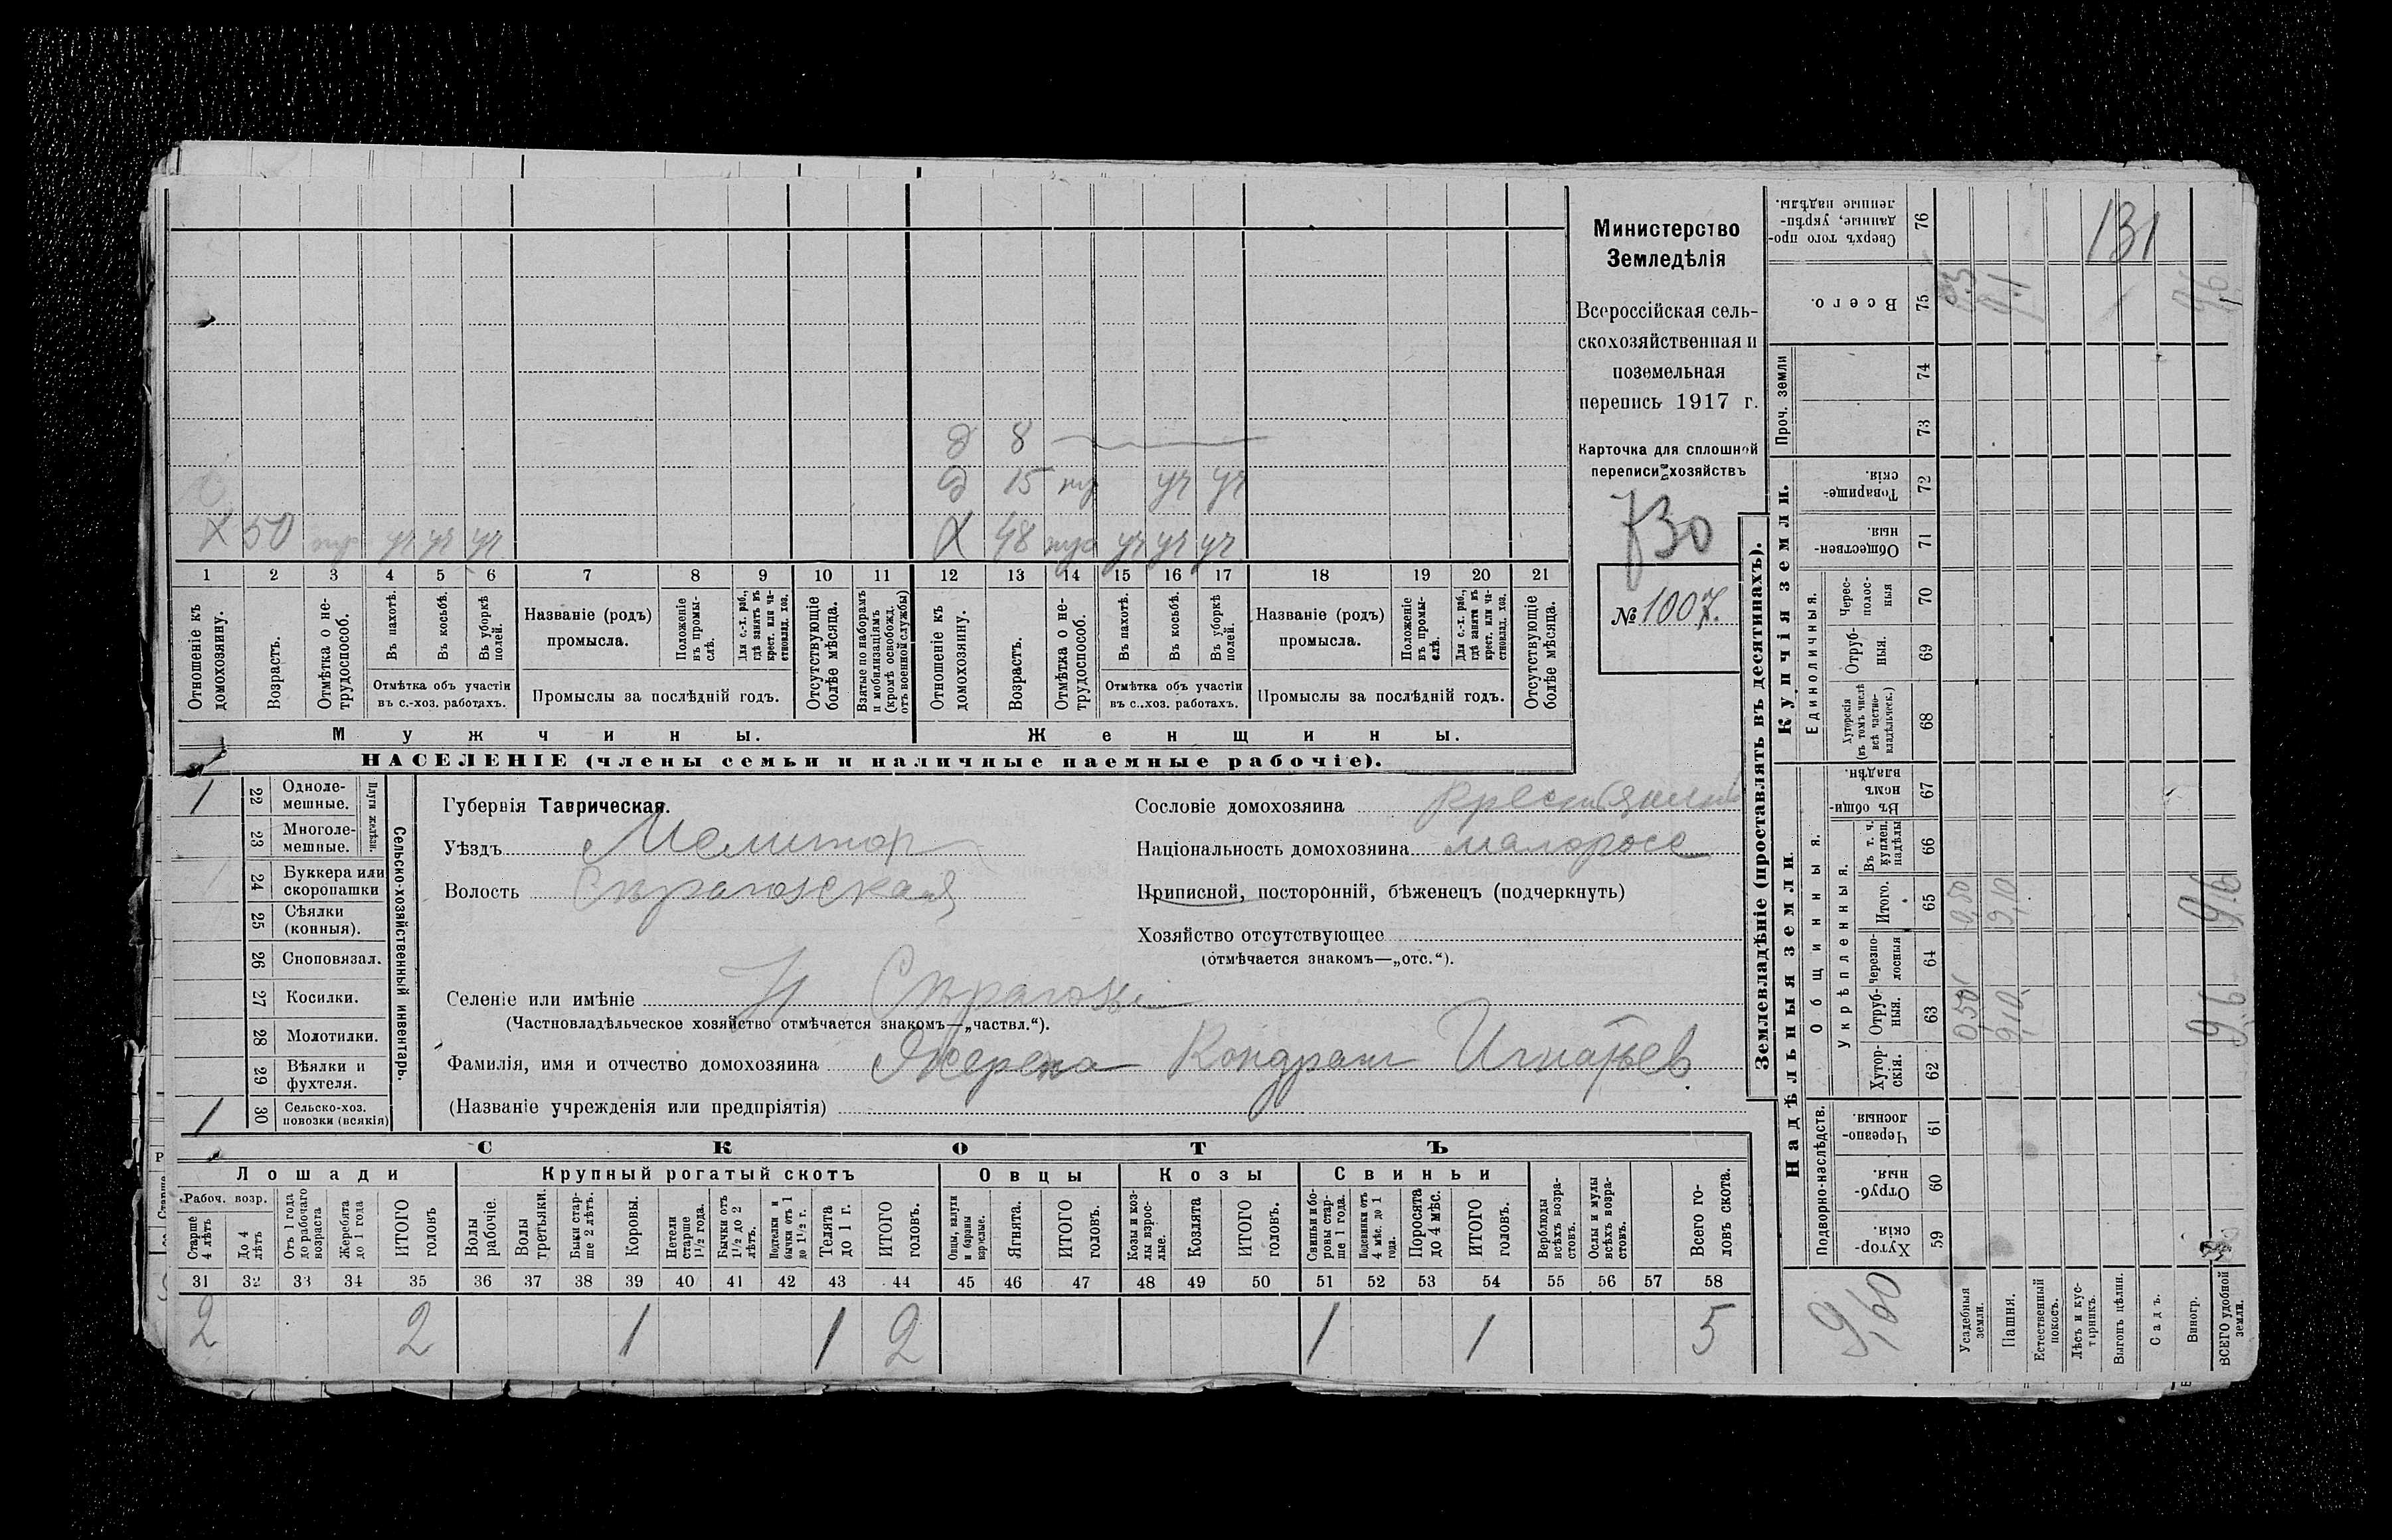 Министерство
Земледѣлія
Всероссійская сель-
скохозяйственная и
поземельная
перепись 1917 г.
Карточка для сплошной
переписи хозяйствъ
730
№ 1007.
д 8
д 15 уч уч
х 50 уч уч уч х 48 уч уч уч
1 2 3 4 5 6 7 8 9 10 11 12 13 14 15 16 17 18 19 20 21
Отношеніе къ домохозяину.
Возрастъ.
Отмѣтка о не-трудоспособ.
Въ пахотѣ.
Въ косьбѣ.
Въ уборкѣ полей.
Отмѣтка объ участіи въ с.-хоз. работахъ.
Названіе (родъ) промысла.
Положеніе въ промы-слѣ.
Для с.-х. раб., гдѣ занятъ въ крест. или ча-стновлад. хоз.
Промыслы за послѣдній годъ.
Отсутствующіе болѣе мѣсяца.
Взятые по наборамъ и мобилизаціямъ (кромѣ освобожд. отъ военной службы)
Отношеніе къ домохозяину.
Возрастъ.
Отмѣтка о не-трудоспособ.
Въ пахотѣ.
Въ косьбѣ.
Въ уборкѣ полей.
Отмѣтка объ участіи въ с.-хоз. работахъ.
Названіе (родъ) промысла.
Положеніе въ промы-слѣ.
Для с.-х. раб., гдѣ заняты въ крест. или ча-стновлад. хоз.
Промыслы за послѣдній годъ.
Отсутствующіе болѣе мѣсяца.
Мужчины. Женщины.
НАСЕЛЕНІЕ (члены семьи и наличные наемные рабочіе).
Сельско-хозяйственный инвентарь.
Плуги желѣзн.
1 22 Одноле-мешные.
23 Многоле-мешные.
24 Буккера или скоропашки
25 Сѣялки (конныя).
26 Сноповязал.
27 Косилки.
28 Молотилки.
29 Вѣялки и фухтеля.
1 30 Сельско-хоз. повозки (всякія)
Губернія Таврическая.
Уѣздъ Мелитоп
Волость Сѣрогозская
Сословіе домохозяина крестьянинъ
Національность домохозяина малоросс
Приписной, посторонній, бѣженецъ (подчеркнуть)
Хозяйство отсутствующее
(отмѣчается знакомъ—„отс.“).
Селеніе или имѣніе Н Сѣрогозы
(Частновладѣльческое хозяйство отмѣчается знакомъ—„частвл.“).
Фамилія, имя и отчество домохозяина Кондрат Игнатьев
(Названіе учрежденія или предпріятія)
СКОТЪ
Лошади Крупный рогатый скотъ Овцы Козы Свиньи
Рабоч. возр.
Старше 4 лѣтъ
До 4 лѣтъ
Отъ 1 года до рабочаго возраста
Жеребята до 1 года
ИТОГО головъ
Волы рабочіе.
Волы третьяки.
Быки стар-ше 2 лѣтъ.
Коровы.
Нетели старше 1½ года.
Бычки отъ 1½ до 2 лѣтъ.
Подтелки и бычки отъ 1 до 1½ г.
Телята до 1 г.
ИТОГО головъ.
Овцы, валухи и бараны взрослые.
Ягнята.
ИТОГО головъ.
Козы и коз-лы взрос-лые.
Козлята
ИТОГО головъ.
Свиньи и бо-ровы стар-ше 1 года.
Подсвинки отъ 4 мѣс. до 1 года.
Поросята до 4 мѣс.
ИТОГО головъ.
Верблюды всѣхъ возра-стовъ.
Ослы и мулы всѣхъ возра-стовъ.
Всего го-ловъ скота.
31 32 33 34 35 36 37 38 39 40 41 42 43 44 45 46 47 48 49 50 51 52 53 54 55 56 57 58
2 2 1 1 2 1 1 5
Землевладѣніе (проставлять въ десятинахъ).
Надѣльныя земли. Купчія земли. Проч. земли
Подворно-наслѣдств.
Общинныя.
Укрѣпленныя.
Единоличныя.
Хутор-скія. 59
Отруб-ныя. 60
Черезпо-лосныя. 61
Хутор-скія. 62
Отруб-ныя. 63
Черезпо-лосныя 64
Итого. 65
Въ т. ч. куплен. надѣлы 66
Въ общи-номъ владѣн. 67
Хуторскія (въ томъ числѣ всѣ частно-владѣльческ.) 68
Отруб-ныя. 69
Черес-полос-ныя 70
Обществен-ныя. 71
Товарище-скія. 72
73
74
Всего. 75
Сверхъ того про-данные, укрѣп-ленные надѣлы. 76
9,60
Усадебныя земли. 0,50 0,50 0,5
Пашня. 9,10 9,10 9,1
Естественный покосъ.
Лѣсъ и кус-тарникъ.
Выгонъ цѣлин.
Садъ.
Виногр.
ВСЕГО удобной земли. 9,6 9,6 9,6
131